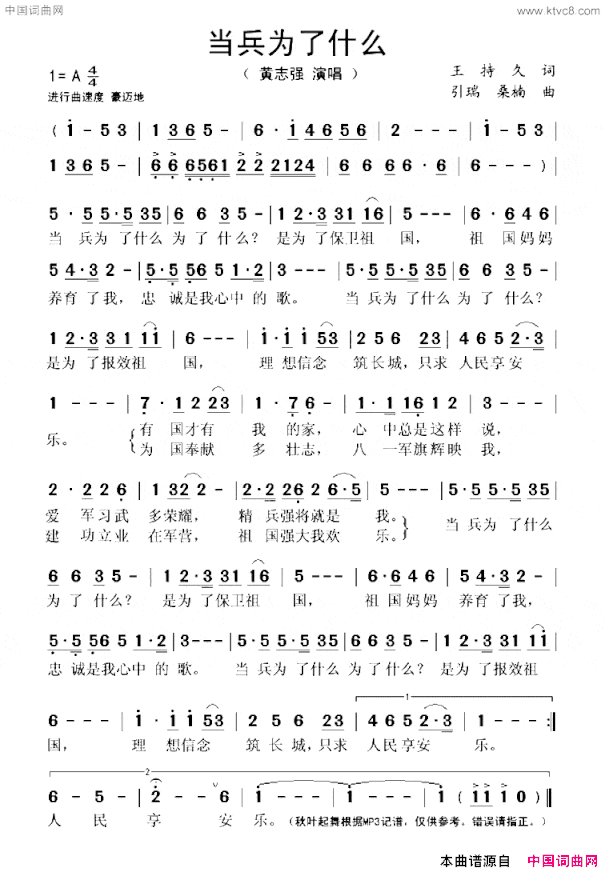 中国词曲网
www.ktvc8.com
当兵为了什么
1= A 4/4
( 黄志强 演唱 )
王 持 久 词
进行曲速度 豪迈地
引瑞 桑楠 曲
( i - 5 3 | 1 3 6 5 - | 6 · i 4 6 5 6 | 5 - - - |
1 3 6 5 - | 6 6 6561 2 2 2124 | 6 6 6 6 · 6 | 6 - - - ) |
5 · 5 5·5 35 | 6 6 3 5 - | 1 2·3 31 16 | 5 - - - | 6 · 6 4 6
当 兵为 了什么 为 了 什么? 是为 了保卫祖 国, 祖 国妈妈
5 4·3 2 - | 5·5 56 5 1·2 | 3 - - - | 5 · 5 5·5 35 | 6 6 3 5 - |
养育 了我, 忠 诚是我心中 的 歌。 当 兵为了什么为 了 什么?
1 2·3 31 11 | 6 - - - | i · i i i 53 | 2 5 6 23 | 4 6 5 2·3 |
是为 了报效祖 国, 理 想信念 筑长城,只求 人民享安
1 - - - | 7 · 1 2 23 | 1 · 7 6 - | 1 · 1 16 1 2 | 3 - - - |
乐。 有 国才有 我 的家, 心 中总是这样 说,
为 国奉献 多 壮志, 八 一军旗辉映 我,
2 · 2 2 6 | 1 32 2 - | 2·2 26 2 6·5 | 5 - - - | 5 · 5 5·5 35 |
爱 军习武 多荣耀, 精 兵强将就是 我。 当兵为 了什么
建 功立业 在军营, 祖 国强大我欢 乐。
6 6 3 5 - | 1 2·3 31 16 | 5 - - - | 6 · 6 4 6 | 5 4·3 2 - |
为 了 什么? 是为 了保卫祖 国, 祖 国妈妈 养育 了我,
5·5 56 5 1·2 | 3 - - - | 5 · 5 5·5 35 | 6 6 3 5 - | 1 2·3 31 11 |
忠 诚是我心中 的 歌。 当 兵为了什么为 了 什么? 是为 了报效祖
1
6 - - - | i · i i i 53 | 2 5 6 23 | 4 6 5 2·3 | 1 - - - :||
国, 理 想信念 筑 长城,只求 人民享安 乐。
2
6 - 5 - | 2 · 2 - | 6 - 6 - | i - - - | i - - - | ( i i i i 0 ) ||
人 民 享 安 乐。 (秋叶起舞根据MP3记谱，仅供参考。错误请指正。)
本曲谱源自 中国词曲网